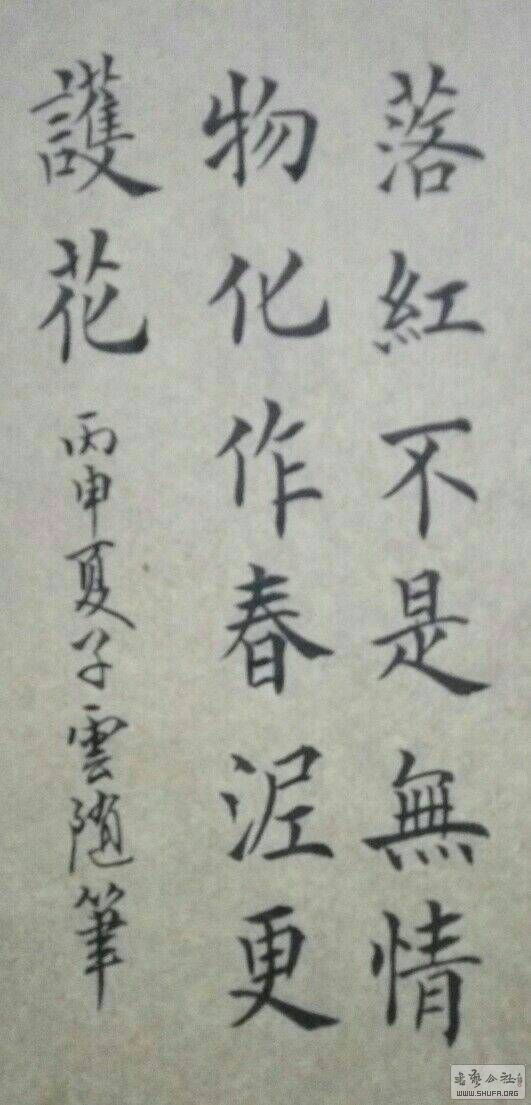 落紅不是無情
物化作春泥更
護花
丙申夏子雲随筆
WWW.SHUFA.ORG